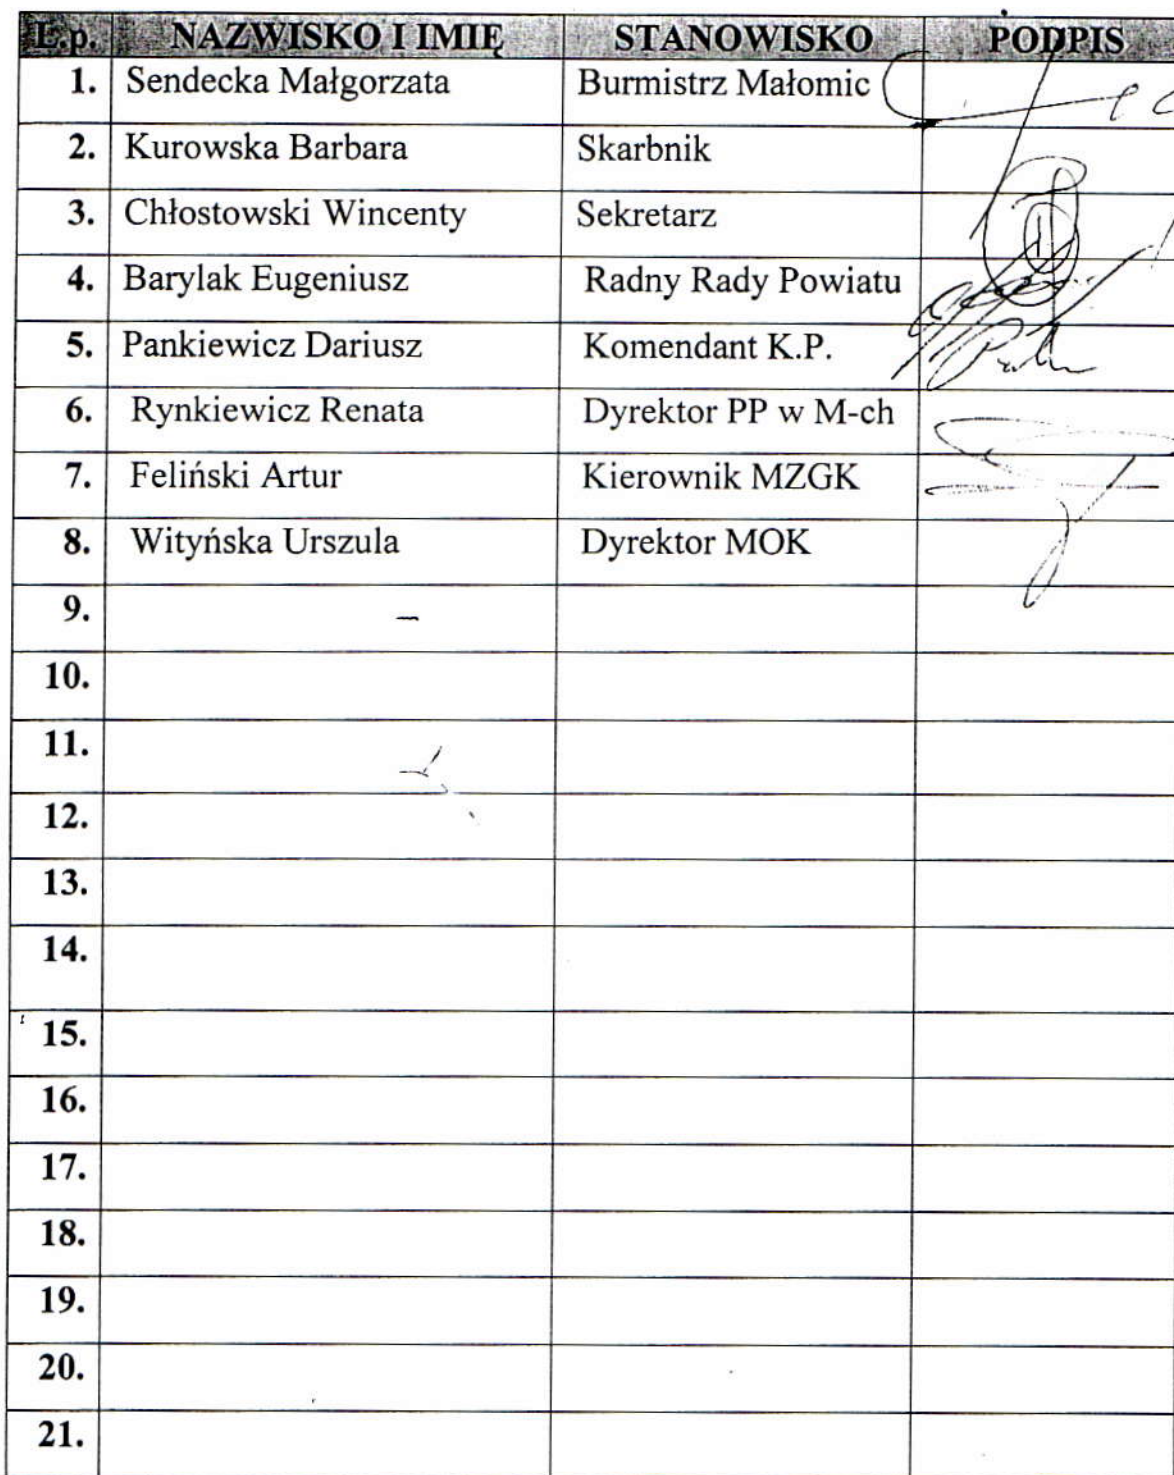 L.p. NAZWISKO I IMIĘ STANOWISKO PODPIS
1. Sendecka Małgorzata Burmistrz Małomic
2. Kurowska Barbara Skarbnik
3. Chłostowski Wincenty Sekretarz
4. Barylak Eugeniusz Radny Rady Powiatu
5. Pankiewicz Dariusz Komendant K.P.
6. Rynkiewicz Renata Dyrektor PP w M-ch
7. Feliński Artur Kierownik MZGK
8. Wityńska Urszula Dyrektor MOK
9.
10.
11.
12.
13.
14.
15.
16.
17.
18.
19.
20.
21.